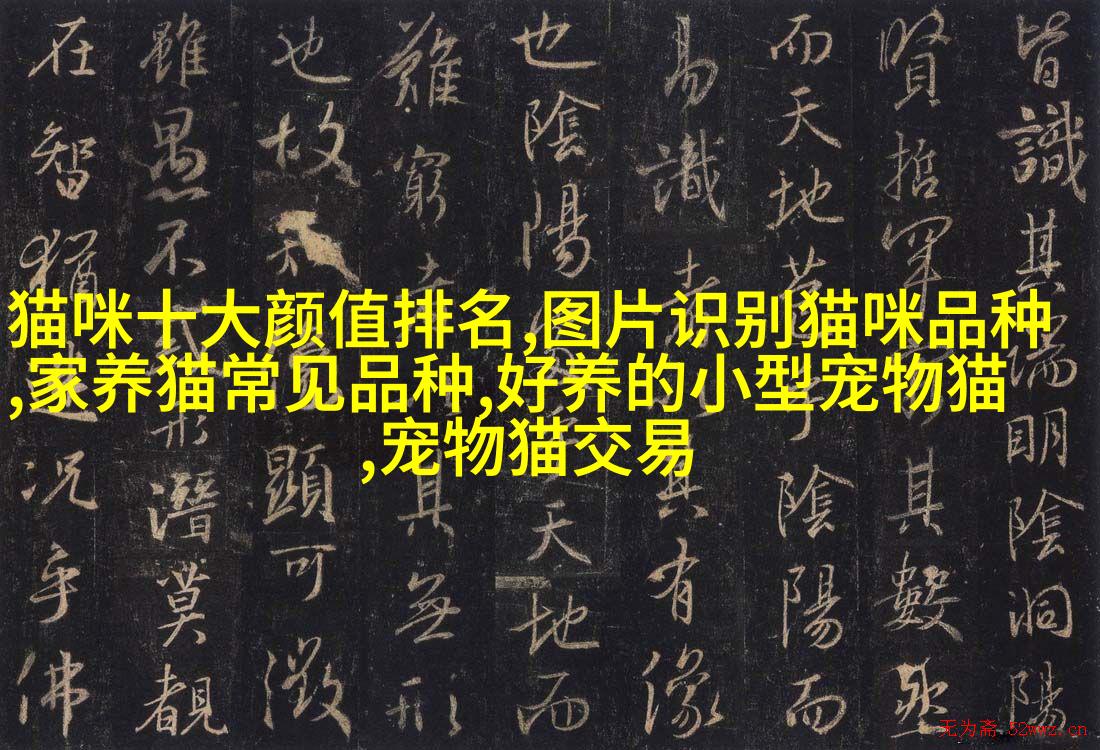 猫咪十大颜值排名,图片识别猫咪品种
,家养猫常见品种,好养的小型宠物猫
,宠物猫交易
皆識其端明陰洞陽
賢哲罕其數
而天地苞乎陰陽而
易識者其有像
也陰陽天地而
難窮者其無形
也故知顯可徵
雖愚不惑形潛莫覩
在智猶迷況乎佛
无为斋 52wwz.cn